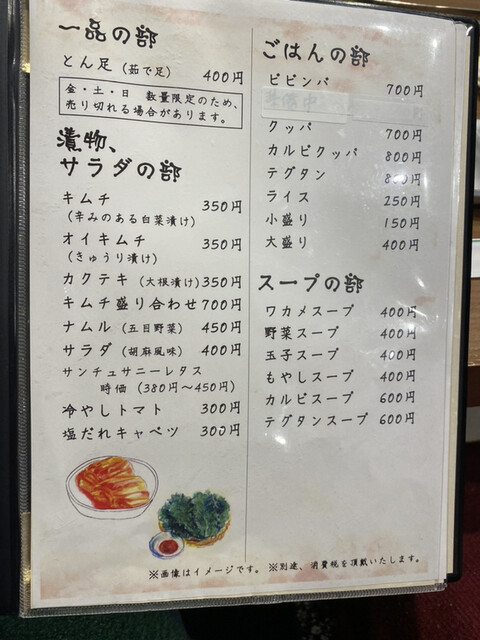 一品の部
とん足 (茹で足) 400円
金・土・日 数量限定のため、
売り切れる場合があります。
漬物、
サラダの部
キムチ 350円
(辛みのある白菜漬け)
オイキムチ 350円
(きゅうり漬け)
カクテキ (大根漬け) 350円
キムチ盛り合わせ 700円
ナムル (五目野菜) 450円
サラダ (胡麻風味) 400円
サンチュサニーレタス
時価 (380円～450円)
冷やしトマト 300円
塩だれキャベツ 300円
ごはんの部
ビビンバ 700円
クッパ 700円
カルビクッパ 800円
テグタン 800円
ライス 250円
小盛り 150円
大盛り 400円
スープの部
ワカメスープ 400円
野菜スープ 400円
玉子スープ 400円
もやしスープ 400円
カルビスープ 600円
テグタンスープ 600円
※画像はイメージです。 ※別途、消費税を頂戴いたします。